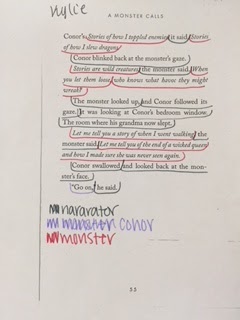 Kylie
A MONSTER CALLS
Conor's. Stories of how I toppled enemies, it said. Stories
of how I slew dragons.
Conor blinked back at the monster's gaze.
Stories are wild creatures, the monster said. When
you let them loose, who knows what havoc they might
wreak?
The monster looked up, and Conor followed its
gaze. It was looking at Conor's bedroom window.
The room where his grandma now slept.
Let me tell you a story of when I went walking, the
monster said. Let me tell you of the end of a wicked queen
and how I made sure she was never seen again.
Conor swallowed and looked back at the mon-
ster's face.
"Go on," he said.
nararator
conor
monster
55